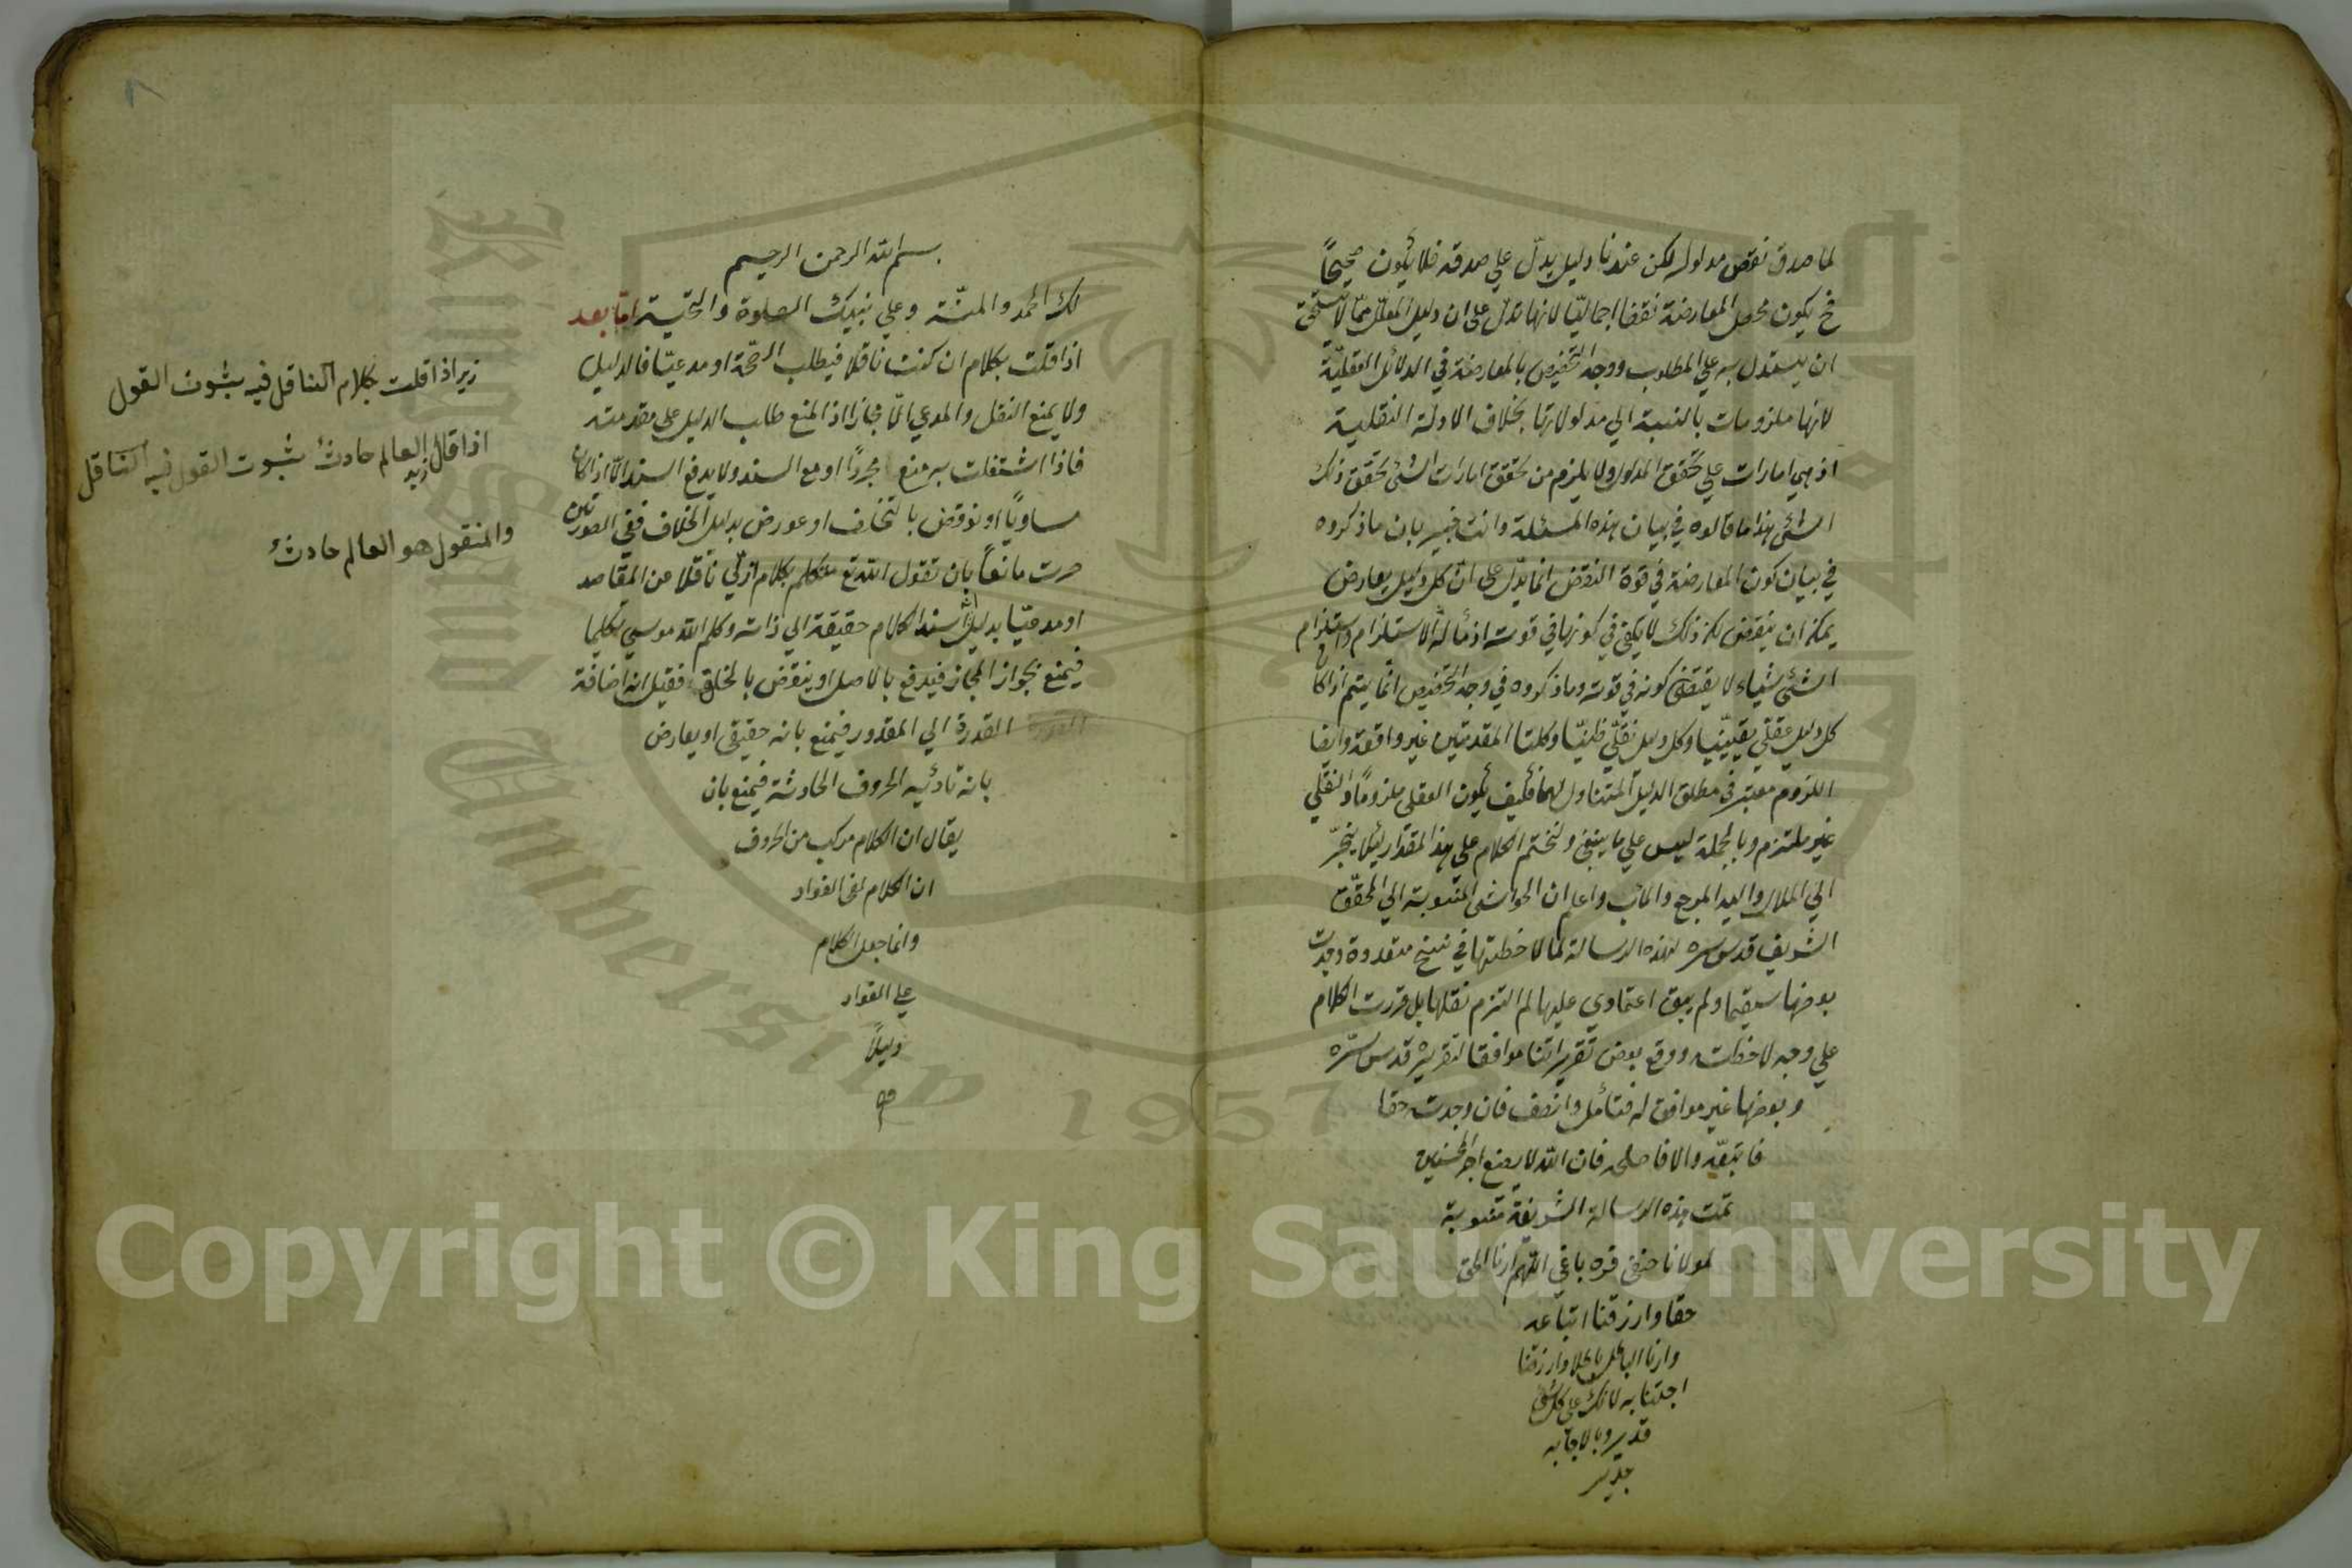 لما صدق نقض مدلوله لكن عندنا دليل يدلّ علي صدقه فلا يكون صحيحاً
فح يكون محصل المعارضة نقضا اجماليّا لانها تدلّ علي ان دليل المعلل ممّا لا يستحق
ان يستدل به علي المطلوب ووجه التخصيص بالمعارضة في الدلائل العقليّة
لانها ملزومات بالنسبة الي مدلولاتها بخلاف الادلة النقلية
اذ هي امارات علي تحقق المدلول ولا يلزم من تحقق امارات الشئ تحقق ذلك
الشئ هذا ما قالوه في بيان هذه المسئلة وانت خبير بان ما ذكروه
في بيان كون المعارضة في قوة النقض انما يدلّ علي انّ كل دليل يعارض
يمكن ان ينقض لكن ذلك لا يكفي في كونها في قوته اذ مآله الاستلزام واستلزام
الشئ شياء لا يقتضي كونه في قوته وما ذكروه في وجه التخصيص انّما يتم اذا كا
كل دليل عقلي يقينيّا وكل دليل نقلّي ظنيّا وكلتا المقدمتين غير واقعة وايضا
اللزوم معتبر في مطلق الدليل المتناول لهما فكيف يكون العقلي ملزوماً والنقلي
غير ملتزم وبالجملة ليس علي ما ينبغي ولنختم الكلام علي هذا المقدار لئلا ينجرّ
الي الملال واليه المرجع والمآب واعلم ان الحواشي المنسوبة الي المحقّق
الشريف قدس سره لهذه الرسالة لما لاحظتها في نسخ متعددة وجدت
بعضها سقيما ولم يبق اعتمادي عليها لم التزم نقلها بل قررت الكلام
علي وجه لاحظته ووقع بعض تقريراتنا موافقا لتقريره قدس سرّه
وبعضها غير موافق له فتأمل وانصف فان وجدته حقا
فاتبعّه والا فاصلحه فان الله لا يضيع اجر المحسنين
تمت هذه الرسالة الشريفة منسوبة
لمولانا حنفي قره باغي اللّهم ارنا الحق
حقا وارزقنا اتباعه
وارنا الباطل باطلا وارزقنا
اجتنابه لانك علي كل شئ
قدير وبالاجابه
جدير
بسم الله الرحمن الرحيم
لك الحمد والمنّة وعلي نبيك الصلوة والتحية امّا بعد
اذا قلت بكلام ان كنت ناقلا فيطلب الصّحة او مدعيّا فالدليل
ولا يمنع النقل والمدعي الّا مجازا اذ المنع طلب الدليل علي مقدمته
فاذا اشتغلت به منع مجردًا او مع السند ولا يدفع السند الّا اذا كان
مساويًا او نوقض بالتخلف او عورض بدليل الخلاف ففي الصورتين
صرت مانعاً بان تقول الله تع متكلم بكلام ازلي ناقلا عن المقاصد
او مدعيّا بدليل انّه اسند الكلام حقيقة الي ذاته وكلم الله موسي تكليما
فيمنع بجواز المجاز فيدفع بالاصل او ينقض بالخلق فقيل انه اضافة
القدرة الي المقدور فيمنع بانه حقيقي او يعارض
بانه تادئيه الحروف الحادثة فيمنع بان
يقال ان الكلام مركب من الحروف
ان الكلام لفي الفواد
وانما جعل الكلام
علي الفواد
دليلاً
زيرا اذا قلت بكلام الناقل فيه بثبوت القول
اذا قال زيد العالم حادث بثبوت القول فيه الناقل
والمنقول هو العالم حادث